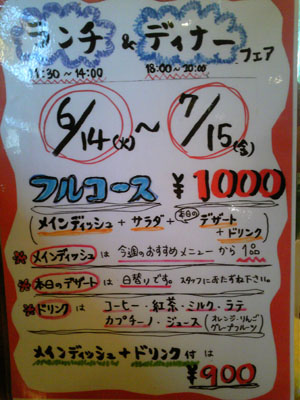 ランチ & ディナー フェア
11:30～14:00 18:00～20:00
6/14(火)～7/15(金)
フルコース ¥1000
(メインディッシュ + サラダ + 本日のデザート
+ ドリンク)
メインディッシュ は 今週のおすすめメニューから1品
本日のデザート は 日替りです。スタッフにおたずね下さい。
ドリンク は コーヒー・紅茶・ミルク・ラテ
カプチーノ・ジュース(オレンジ・りんご
グレープフルーツ)
メインディッシュ + ドリンク付は
¥900